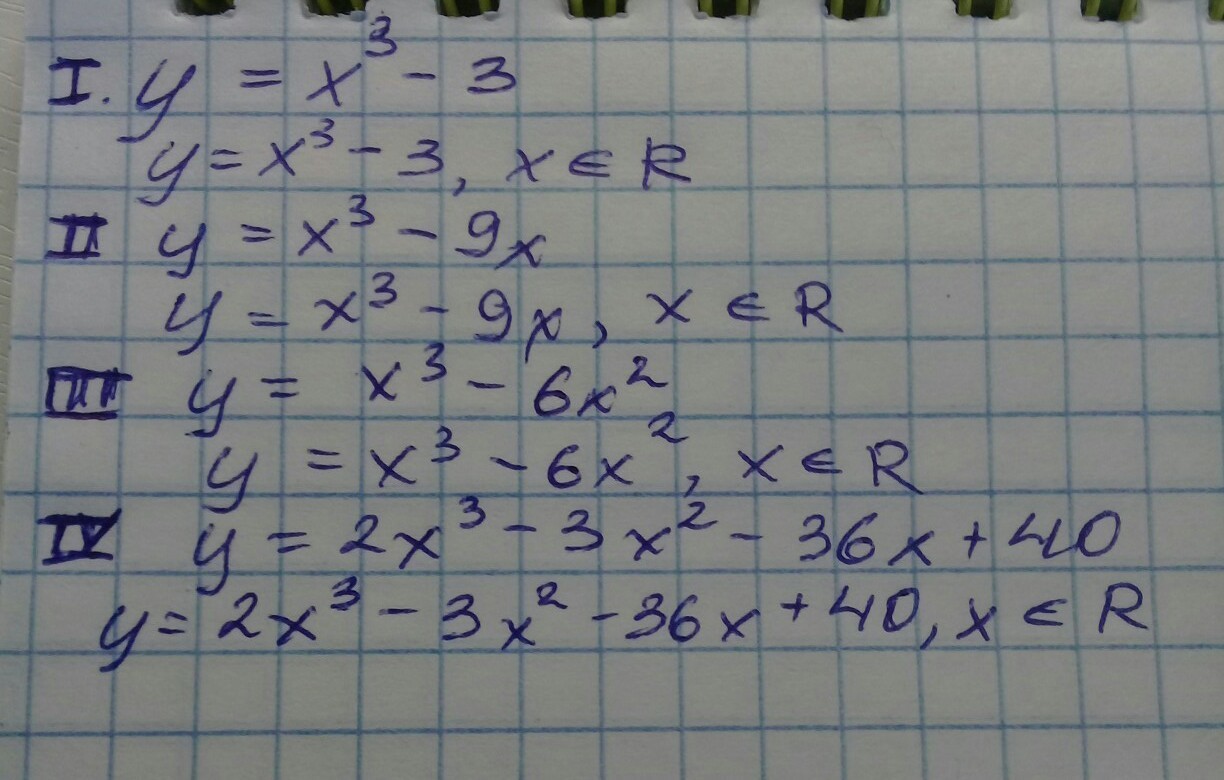 I. y = x³ - 3
y = x³ - 3, x ∈ R
II y = x³ - 9x
y = x³ - 9x, x ∈ R
III y = x³ - 6x²
y = x³ - 6x², x ∈ R
IV y = 2x³ - 3x² - 36x + 40
y = 2x³ - 3x² - 36x + 40, x ∈ R